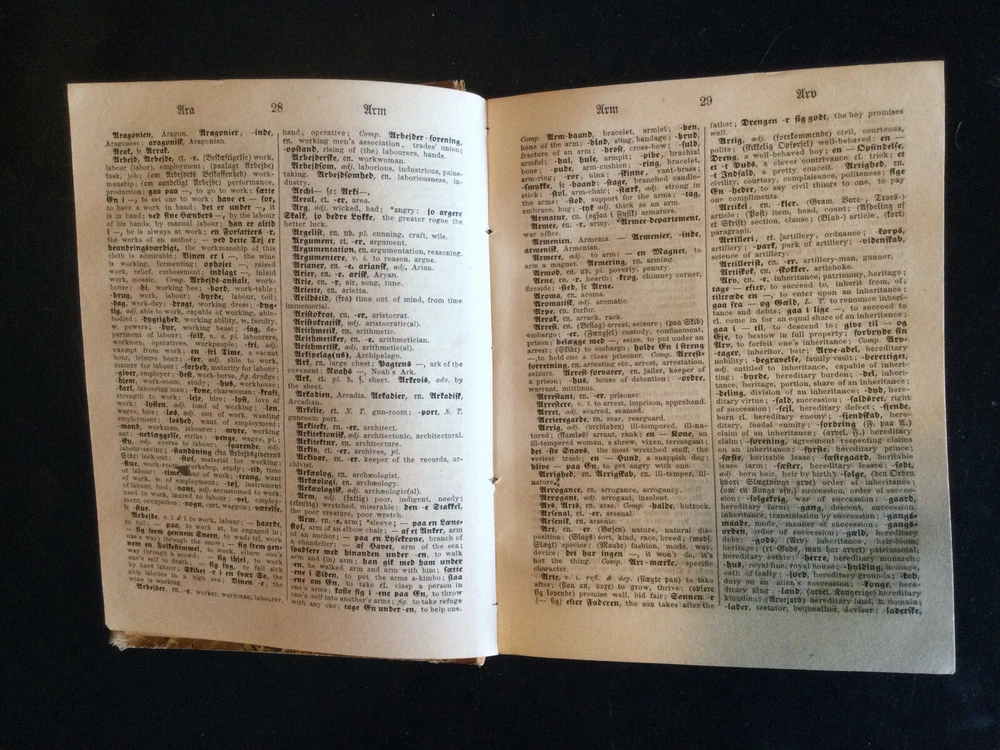 Ara
28
Arm
Aragonien, Aragon. Aragonier, -inde,
Aragonese; aragonisk, Aragonian.
Arak, se Arrak.
Arbejd, Arbejde, et. -r. (Beskæftigelse) work,
labour (labor), employment, (paalagt Arbejde)
task, job; (om Arbejdets Beskaffenhed) work-
manship; (om aandligt Arbejde) performance,
production; gaa paa —, to go to work; sætte
En i —, to set one to work; have et — for,
to have a work in hand; det er under —, it
is in hand; ved sine Hænders —, by the labour
of his hands, by manual labour; han er altid
i —, he is always at work; en Forfatters -r,
the works of an author; — ved dette Tøj er
beundringsværdigt, the workmanship of this
cloth is admirable; Vinen er i —, the wine
is working, fermenting; ophøjet —, raised
work, relief, embossment; indlagt —, inlaid
work, mosaic. Comp. Arbejds-anstalt, work-
house; -bi, working bee; -bord, work-table;
-brug, work, labour; -byrde, labour, toil;
-dag, work-day; -dragt, working dress; -dyg-
tig, adj. able to work, capable of working, able-
bodied; -dygtighed, working ability, w. faculty,
w. powers; -dyr, working beast; -fag, de-
partment of labour; -folk, n. s. pl. labourers,
workmen, operatives, workpeople; -fri, adj.
exempt from work; en fri Time, a vacant
hour, leisure hour; -før, adj. able to work,
mature for labour; -førhed, maturity for labour;
-giver, employer; -hest, work-horse, fig. drudge;
-hjem, work-room, study; -hus, workhouse;
-karl, labouring man; -kone, charwoman; -kraft,
strength to work; -leje, hire; -lyst, love of
work; -lysten, adj. fond of working; -løn,
wages, hire; -løs, adj. out of work, wanting
employment; -løshed, want of employment;
-mand, workman, labourer; -myre, working
ant; -nedlæggelse, strike; -penge, wages, pl.;
-sky, adj. averse to labour; -sparende, adj.
labour-saving; -standsning (fra Arbejdsgiverens
Side) lock-out; -stof, material for working;
-stue, work-room, workshop, study; -tid, time
of labour; -time, work-hour; -trang, want
of w. of employment; -tøj, instrument
of labour, tool; -vant, adj. accustomed to work,
used to work, inured to labour; -vej, employ-
ment, occupation; -vogn, cart, waggon; -værelse,
se -stue.
Arbejde, v. t & i. to work, labour; — haardt,
to toil; — paa, to work at, be engaged in;
— sig frem gennem Sneen, to wade (cl. work
one's way) through the snow; — sig frem gen-
nem en Folkestimmel, to work, elbow one's
way through a crowd; — sig ihjel, to work
one's self to death; — sig syg, to fall sick
by hard labour; Skibet -r i en svær Sø, the
ship labours in a high sea; Vinen -r, the
wine is working.
Arbejder, en. -e. worker, workman, labourer,
hand, operative; Comp. Arbejder-forening,
en. working men's association, trades' union;
-opstand, rising of (the) labourers, hands.
Arbejderske, en. workwoman.
Arbejdsom, adj. laborious, industrious, pains-
taking. Arbejdsomhed, en. laboriousness, in-
dustry.
Archi— se: Arki—.
Areal, et. -er. area.
Arg, adj. wicked, bad; *angry; jo argere
Skalk, jo bedre Lykke, the greater rogue the
better luck.
Argelist, en. ub. pl. cunning, craft, wile.
Argument, et. -er. argument.
Argumentation, en. argumentation, reasoning.
Argumentere, v. i. to reason, argue.
Arianer, en. -e. ariansk, adj. Arian.
Arier, en. -e. arisk, Aryan.
Arie, en. -r. air, song, tune.
Ariette, en. arietta.
Arildstid, (fra) time out of mind, from time
immemorial.
Aristokrat, en. -er. aristocrat.
Aristokratisk, adj. aristocratic(al).
Arithmetik, en. arithmetic.
Arithmetiker, en. -e. arithmetician.
Arithmetisk, adj. arithmetic(al).
Arkipelag(us), Archipelago.
Ark, en. large chest; Pagtens —, ark of the
covenant; Noahs —, Noah's Ark.
Ark, et. pl. d. s. sheet. Arkevis, adv. by
the sheet.
Arkadien, Arcadia. Arkadier, en. Arkadisk,
Arcadian.
Arkelie, et. N. T. gun-room; -port, N. T.
gunroom port.
Arkitekt, en. -er. architect.
Arkitektonisk, adj. architectonic, architectural.
Arkitektur, en. architecture.
Arkiv, et. -er. archives, pl.
Arkivar, en. -er. keeper of the records, ar-
chivist.
Arkæolog, en. archæologist.
Arkæologi, en. archæology.
Arkæologisk, adj. archæologic(al).
Arm, adj. (fattig) poor, indigent, needy;
(elendig) wretched, miserable; den -e Stakkel,
the poor creature, poor wretch.
Arm, en. -e. arm; *sleeve; — paa en Læne-
stol, arm of an elbow chair; — af et Anker, arm
of an anchor; — paa en Lysekrone, branch of
a chandelier; — af Havet, arm of the sea;
spadsere med hinanden under -en, to walk
arm and (in) arm; han gik med ham under
-en, he walked arm and arm with him; sætte
-ene i Siden, to put the arms a-kimbo; slaa
-ene om En, to take cl. clasp a person in
one's arms; kaste sig i -ene paa En, to throw
one's self into another's arms; fig. to take refuge
with any one; tage En under -en, to help one.
Arm
29
Arv
Comp. Arm-baand, bracelet, armlet; -ben,
bone of the arm; -bind, sling, bandage; -brud,
fracture of an arm; -brøst, cross-bow; -fuld,
armful; -hul, hule, armpit; -pibe, brachial
bone; -pude, arm-cushion; -ring, bracelet,
arm-ring; -rør, ulna; -skinne, vant-brass;
-smykke, se -baand; -stage, branched candle-
stick; -stol, arm-chair; -stærk, adj. strong in
the arms; -stød, support for the arm; -tag,
embrace, hug; -tyk adj. thick as an arm.
Armatur, en. (ogsaa i Fysik) armature.
Armé, en. -er. army. Armee-departement,
war office.
Armenien, Armenia. — Armenier, -inde,
armenisk, Armenian.
Armere, adj. to arm; — en Magnet, to
arm a magnet. Armering, en. arming.
Armod, en. ub. pl. poverty, penury.
Arne, en. -r. hearth; -krog, chimney corner,
fireside; -sted, se Arne.
Aroma, en. aroma.
Aromatisk, adj. aromatic.
Arpe, en. furfur.
Arrak, en. arrack, rack.
Arrest, en. (Beslag) arrest, seizure; (paa Skib)
embargo; -er. (Fængsel) custody, confinement,
prison; belægge med —, seize, to put under an
arrest; (Skibe) to embargo; holde En i streng
—, to hold one a close prisoner. Comp. Arrest-
forretning, en. arresting etc. arrest, arrestation,
seizure. Arrest-forvarer, en. jailer, keeper of
a prison; -hus, house of detention; -ordre,
warrant, mittimus.
Arrestant, en. -er. prisoner.
Arrestere, v. t. to arrest, imprison, apprehend.
Arret, adj. scarred, seamed.
Arrieregarde, en. rearguard.
Arrig, adj. (vredladen) ill-tempered, ill-na-
tured; (slemt) arrant, rank; en — Kone, an
ill tempered woman, a shrew, vixen, termagant;
det -ste Snavs, the most wretched stuff, the
veriest trash; en — Hund, a snappish dog;
blive — paa En, to get angry with one.
Arrighed, en. Arrigskab, en. ill-temper, ill-
nature.
Arrogance, en. arrogance, arrogancy.
Arrogant, adj. arrogant, insolent.
Ars, Arts, en. arse. Comp. -balde, buttock.
Arsenal, et. -er. arsenal.
Arsenik, en. arsenic.
Art, en. -er. (Væsen) nature, natural dis-
position; (Slags) sort, kind, race, breed; (mods.
Slægt) species; (Maade) fashion, mode, way,
device; det har ingen —, it won't do, it's
not the proper thing. Comp. Art-mærke, specific
character.
Arte, v. i. refl. & dep. (slægte paa) to take
after; (Saa en, trye) to grow, thrive; (opføre
sig lovende) promise well, bid fair; Sønnen -r
(— sig) efter Faderen, the son takes after the
father; Drengen -r sig godt, the boy promises
well.
Artig, adj. (forekommende) civil, courteous,
polite; (skikkelig Opførsel) well-behaved; en —
Dreng, a well-behaved boy; en — Opfindelse,
et -t Puds, a clever contrivance cl. trick; et
-t Indfald, a pretty conceit. Artighed, en.
civility, courtesy, complaisance, politeness; sige
En -heder, to say civil things to one, to pay
one compliments.
Artikel, en. -kler. (Gram. Vare-, Troes-)
article; (Post) item, head, count; (Afdeling af
et Skrift) section, clause; (Blad-) article, (kort)
paragraph.
Artilleri, et. [artillery, ordnance; -korps,
artillery; -park, park of artillery; -videnskab,
science of artillery.
Artillerist, en. -er. artillery-man, gunner.
Artiskok, en. -skokker. artichoke.
Arv, en. -e. inheritance, patrimony, heritage;
tage — efter, to succeed to, inherit from, of;
tiltræde en —, to enter upon an inheritance;
gaa fra — og Gæld, L. T. to renounce inheri-
tance and debts; gaa i lige —, to succeed to
cl. come in for an equal share of an inheritance;
gaa i — til, to descend to; give til — og
Eje, to bestow in full property; forbryde sin
Arv, to forfeit one's inheritance; Comp. Arv-
tager, inheritor, heir; Arve-adel, hereditary
nobility; -begravelse, family vault; -berettiget,
adj. entitled to inheritance, capable of inherit-
ing; -byrde, hereditary burden; -del, inheri-
tance, heritage, portion, share of an inheritance;
-deling, division of an inheritance; -dyd, here-
ditary virtue; -fald, succession; -faldsret, right
of succession; -fejl, hereditary defect; -fjende,
born cl. hereditary enemy; -fjendskab, here-
ditary, feudal enmity; -fordring (R. paa E.)
claim of an inheritance; (arvel. F.) hereditary
claim; -forening, agreement respecting claims
on an inheritance; -fyrste, hereditary prince;
-fæste, heritable lease; -fæstegaard, heritable
lease farm; -fæster, hereditary lessee; -født,
adj. born heir, heir by birth; -følge, (den Orden
hvori Slægtninge arve) order of inheritance;
(om en Konge osv.) succession, order of succes-
sion; -følgekrig, war of succession; -gaard,
hereditary farm; -gang, descent, succession,
inheritance, transmission by succession; -gangs-
maade, mode, manner of succession; -gangs-
orden, order of succession; -gæld, hereditary
debt; -gods, (Arv) inheritance, heir-dom;
heritage; (et Gods, man har arvet) patrimonial,
hereditary estate; -herre, hereditary monarch;
-hus, royal line, royal house; -hylding, homage,
oath of fealty; -jord, hereditary grounds; -køb,
duty on an alien's succession; -konge, here-
ditary king; -land, (arvel. Kongerige) hereditary
kingdom; (Arvejord) hereditary land, h. domain;
-lader, testator, bequeather, deviser; -laderske,